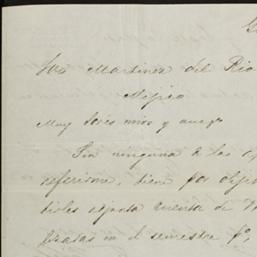 Sres Martinez del Rio
Mejico
Muy Sores mios y amigos
Sin ninguna a las q
referirme, tiene por objeto
bleles adjunta cuenta de
en el semestre